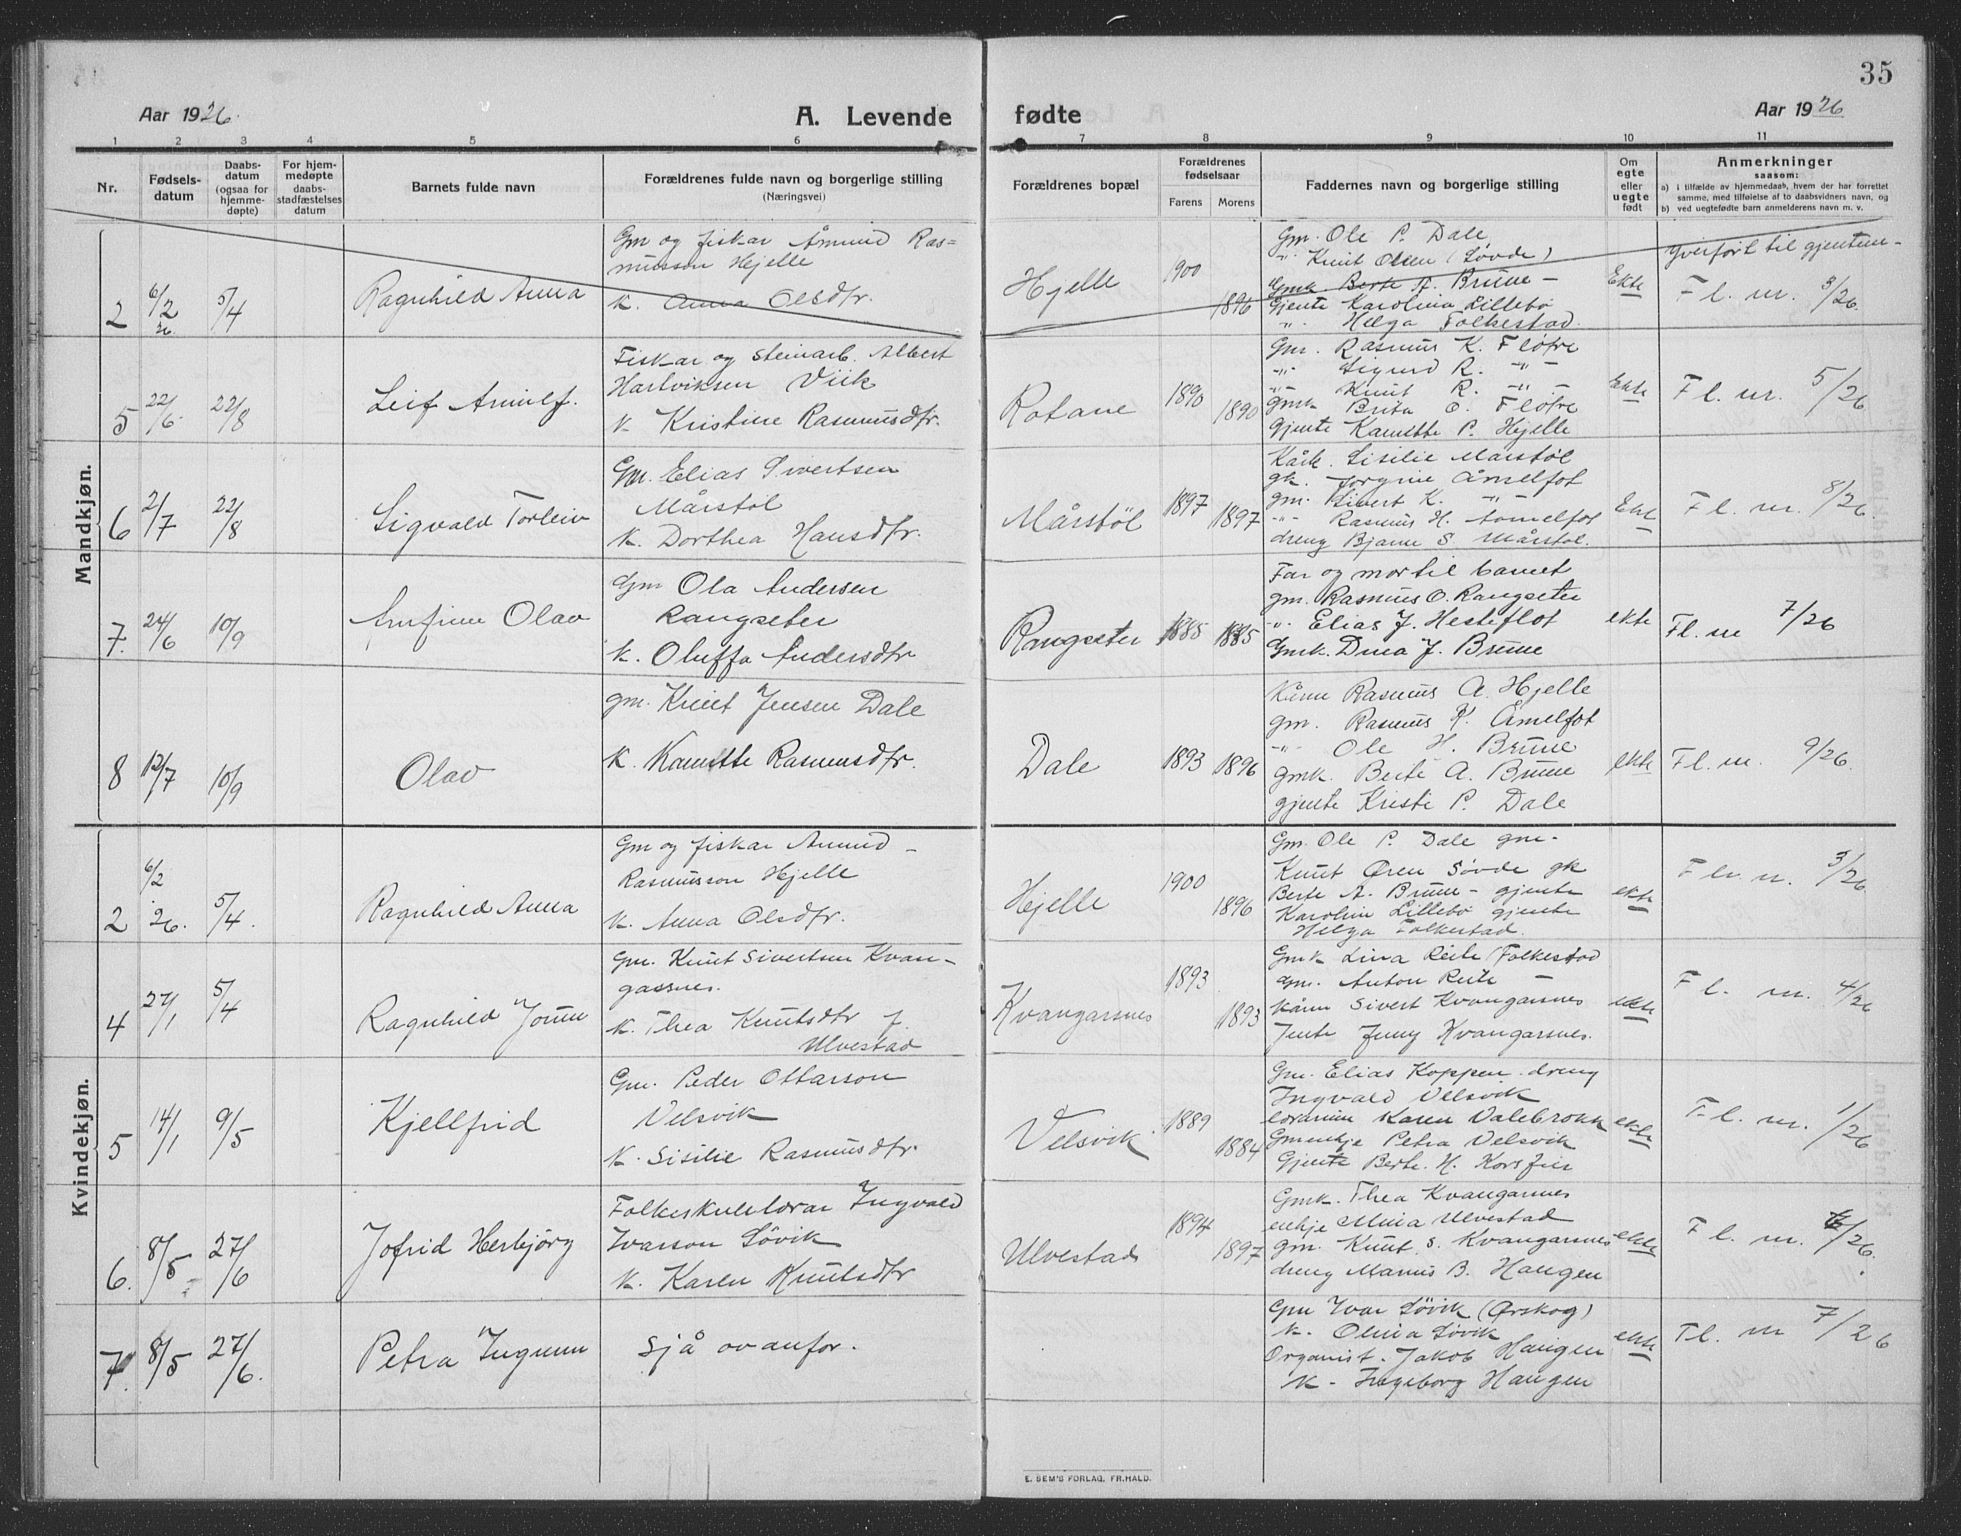 35
Aar 1926.
A. Levende fødte
Aar 1926
1 2 3 4 5 6 7 8 9 10 11
Nr.
Fødsels-
datum
Daabs-
datum
(ogsaa for
hjemme-
døpte)
For hjem-
medøpte
daabs-
stadfæstelses
datum
Barnets fulde navn
Forældrenes fulde navn og borgerlige stilling
(Næringsvei)
Forældrenes bopæl
Forældrenes
fødselsaar
Farens Morens
Faddernes navn og borgerlige stilling
Om
egte
eller
uegte
født
Anmerkninger
saasom:
a) i tilfælde av hjemmedaab, hvem der har forrettet
samme, med tilføielse af to daabsvidners navn, og
b) ved uegtefødte barn anmelderens navn m. v.
Mandkjøn.
2 6/2 26. 5/4 Ragnhild Anna
Gm og fiskar Åmund Ras=
musson Hjelle
K. Anna Olsdtr.
Hjelle 1900 1896
Gm. Ole P. Dale
" Knut Olsen (Søvde)
Gmk Berte A. Brune -
Gjente Karolina Lillebø
" Helga Folkestad.
Ekte
Yverført til gjentene-
Fl. nr. 3/26.
5 22/6 22/8 Leif Arnulf.
Fiskar og steinarb. Albert
Hartviksen Viik
K Kristine Rasmusdtr.
Rotane 1890 1890
Gm. Rasmus K. Fløtre
-"- Sigurd R. -"-
-"- Knut R. -"-
gmk Brita O. Fløtre
gjente Kamitte P. Hjelle
Ekte Fl. nr. 5/26
6 2/7 22/8 Sigvald Torleiv
Gm. Elias Sivertsen
Mårstøl
K. Dorthea Hansdtr.
Mårstøl 1897 1897
Kårk. Sisilie Mårstøl
gk. Jorgine Åmelfot
gm. Sivert K. -"-
-"- Rasmus H. Åmelfot
dreng Bjarne S Mårstøl.
Ekte Fl. nr. 8/26.
7. 24/6 10/9 Arnfinn Olav
Gm Ola Andersen
Rangseter
K. Oluffa Andersdtr
Rangseter 1885 1885
Far og mor til barnet
gm. Rasmus O. Rangseter
-"- Elias J. Hestflot
Gmk. Dina J. Brune
ekte Fl. nr 7/26
8 12/7 10/9 Olav
gm. Knut Jensen Dale
K. Kamitte Rasmusdtr.
Dale 1893 1896
Kårm Rasmus A. Hjelle
gm. Rasmus K. Åmelfot
-"- Ole H. Brune
gmk. Berte A. Brune
gjente Kristi P. Dale
ekte Fl. nr. 9/26.
Kvindekjøn.
2 6/2 26. 5/4. Ragnhild Anna
Gm og fiskar Åmund -
Rasmusson Hjelle
K. Anna Olsdtr.
Hjelle 1900 1896
Gm. Ole P. Dale gm-
Knut Øren Søvde gk
Berte A. Brune - gjente
Karolin Lillebø gjente
Helga Folkestad.
ekte Fl. nr. 3/26
4 27/1 5/4 Ragnhild Jorun
Gm. Knut Sivertsen Kvan-
gassnes.
K. Thea Knutsdtr f.
Ulvestad
Kvangarsnes 1893 1893
Gmk Lina Reite (Folkestad
gm. Anton Reite -
Kårm Sivert Kvangarsnes
Jente Jenny Kvangarsnes.
ekte Fl. nr. 4/26
5 14/1 9/5 Kjellfrid
Gm. Peder Ottarson
Velsvik
K. Sisilie Rasmusdtr.
Velsvik 1889 1884
Gm. Elias Koppen. dreng
Ingvald Velsvik
lærarinn Karen Dalebrokk
Gmenkje Petra Velsvik
Gjente Berte. H.
ekte Fl. nr. 1/26
6. 8/5 27/6 Jofrid Herbjörg
Folkeskulelærar Ingvald
Ivarson Løvik
K. Karen Knutsdtr
Ulvestad 1894 1897
Gmk. Thea Kvangarnes
enkje Mina Ulvestad
gm. Knut. S. Kvangarsnes
dreng Marius B. Haugen
ekte Fl. nr. 6/26.
7. 8/5 27/6. Petra Ingunn
Sjå ovanfor.
Gm Ivar Løvik (Ørskog)
K. Olina Løvik
Organist. Jakob Haugen
K - Ingeborg Haugen
ekte Fl. nr 7/26
E. SEM'S FORLAG, FR.HALD.